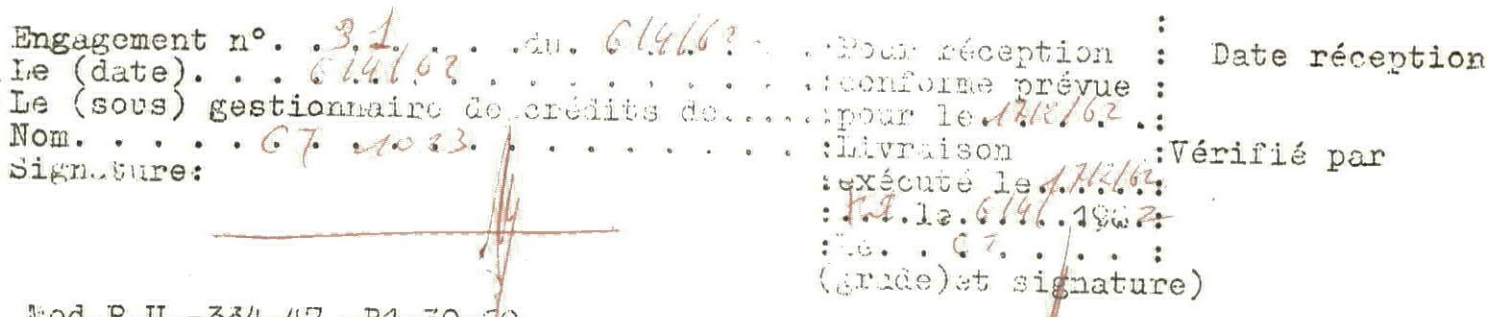 Engagement n°. .31. . . .du. 6/4/62 . . .:Pour réception : Date réception
Le (date). . . 6/4/62 . . . . . . . . . .:conforme prévue :
Le (sous) gestionnaire de crédits de.....:pour le.17/2/62. .:
Nom. . . . . C7 1023. . . . . . . . . . :Livraison :Vérifié par
Signature: :exécuté le.17/2/62:
:. . . .le.6/4/.1962:
:Le. . C7. . . . . :
(grade)et signature)
Mod.R.U.